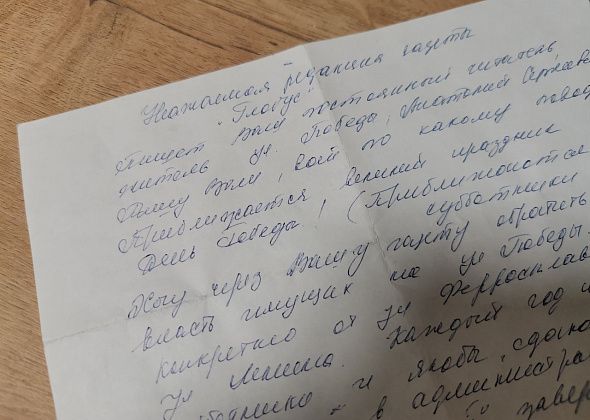 Уважаемая редакция газеты
"Глобус"
Пишет Вам постоянный читатель
житель ул. Победы, Анатолий Сергеев
Пишу Вам, вот по какому повод
Приближается великий праздник
День Победы, (Приближаются
субботники
Хочу через Вашу газету обратить
власть имущих на ул Победы.
конкретно от ул Ферросплав
ул Ленина. Каждый год
и якобы, сдано
в администра
завер